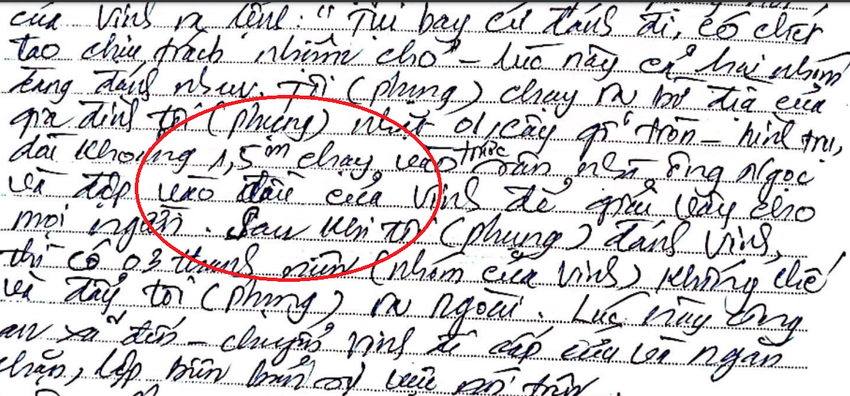 của Vinh ra lệnh: "Tụi bay cứ đánh đi, có chết
tao chịu trách nhiệm cho" - lúc này cả hai nhóm
đang đánh nhau. Tôi (phụng) chạy ra bờ đìa của
gia đình tôi (phụng) nhặt 01 cây gỗ tròn - hình trụ,
dài khoảng 1,5m chạy vào trước sân nhà ông Ngọc
và đập vào đầu của Vinh để giải vây cho
mọi người. Sau khi tôi (phụng) đánh Vinh,
thì có 03 thanh niên (nhóm của Vinh) khống chế
và đẩy tôi (phụng) ra ngoài. Lúc này công
an xã đến - chuyển Vinh đi cấp cứu và ngăn
chặn, lập biên bản sự việc nói trên.